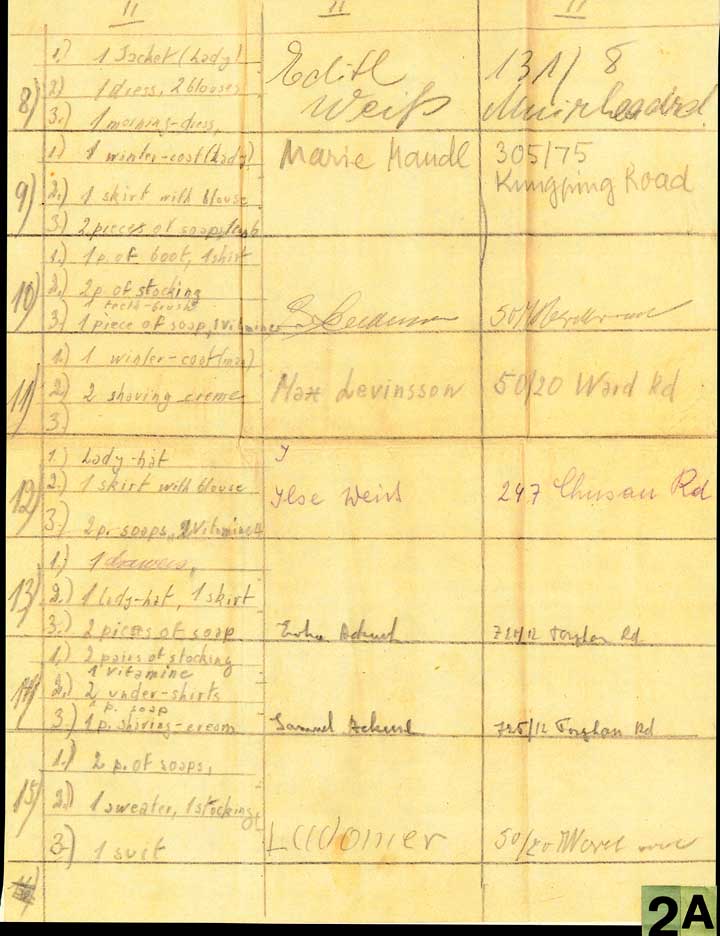 " " "
8) 1.) 1 Jacket (Lady) Edith 131/8
2) 1 dress, 2 blouses Weiß
3.) 1 morning-dress,
9) 1.) 1 winter-coat (Lady) Marie Mandl 305/75
2.) 1 skirt with blouse Kungping Road
3) 2 pieces of soaps,
10) 1.) 1 p. of boot, 1 shirt
2.) 2 p. of stocking
1 teeth-brush
3.) 1 piece of soap, 1 Vitamine
11) 1.) 1 winter-coat (man)
2) 2 shaving creme Max Levinsson 50/20 Ward Rd
3)
12) 1.) Lady-hat
2.) 1 skirt with blouse Ilse Weiss 247 Chusan Rd
3.) 2 p. soaps, 2 Vitamine
13) 1.) 1 drawers,
2.) 1 lady-hat, 1 skirt
3.) 2 pieces of soap Rd
14) 1.) 2 pairs of stocking
1 vitamine
2.) 2 under-shirts
1 p. soap
3.) 1 p. shaving-cream Samuel 725/12 Rd
15) 1.) 2 p. of soaps,
2.) 1 sweater, 1 stocking
3) 1 suit 50/20
2A